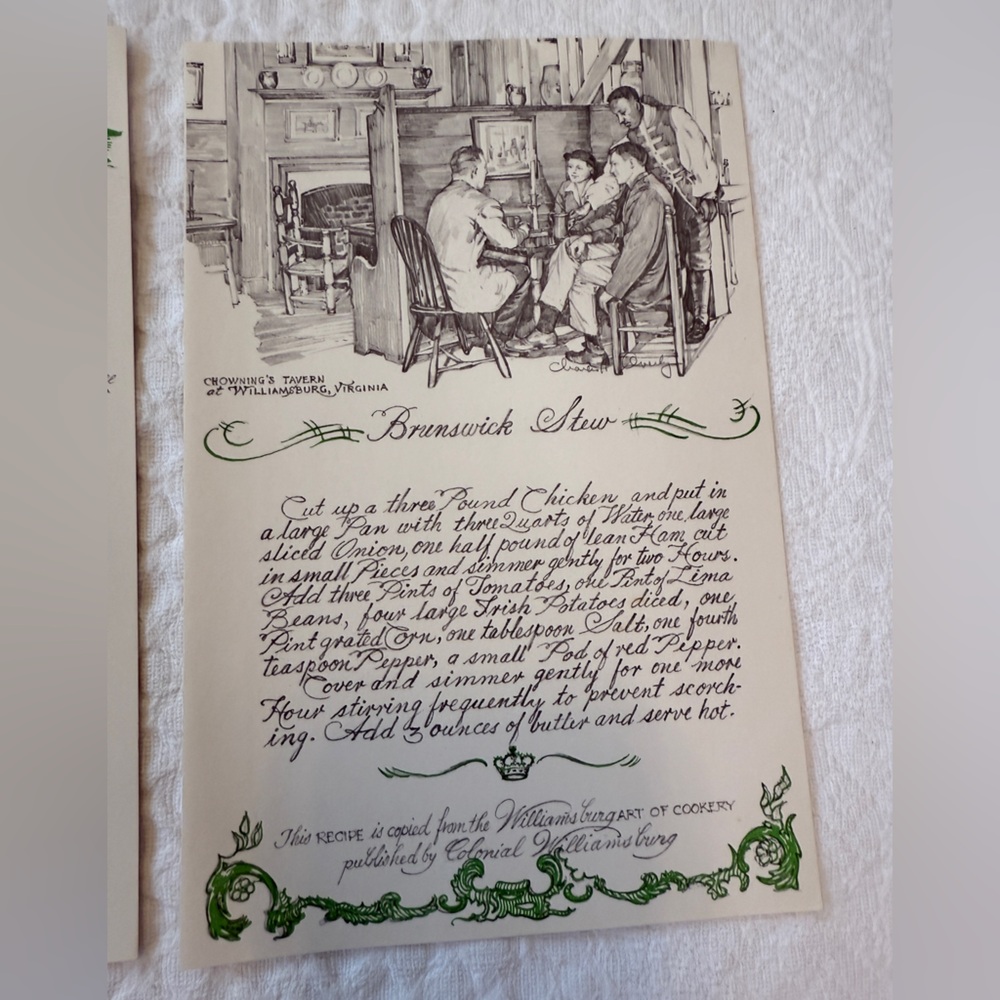 CHOWNING'S TAVERN
at WILLIAMSBURG, VIRGINIA
Brunswick Stew
Cut up a three Pound Chicken and put in
a large Pan with three Quarts of Water, one large
sliced Onion, one half pound of lean Ham cut
in small Pieces and simmer gently for two Hours.
Add three Pints of Tomatoes, one Pint of Lima
Beans, four large Irish Potatoes diced, one
Pint grated Corn, one tablespoon Salt, one fourth
teaspoon Pepper, a small Pod of red Pepper.
Cover and simmer gently for one more
Hour stirring frequently to prevent scorch-
ing. Add 3 ounces of butter and serve hot.
This RECIPE is copied from the Williamsburg ART OF COOKERY
published by Colonial Williamsburg